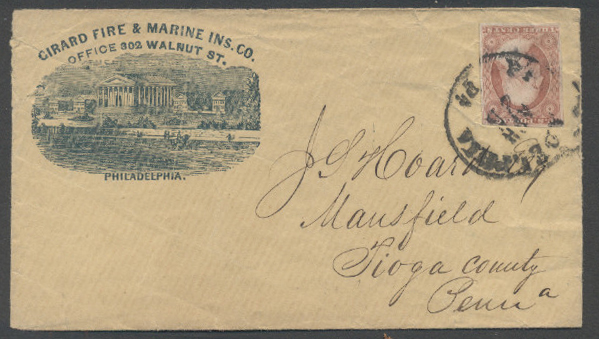 GIRARD FIRE & MARINE INS. CO.
OFFICE 302 WALNUT ST.
PHILADELPHIA.
PA
J S Hoard
Mansfield
Tioga County
Penna